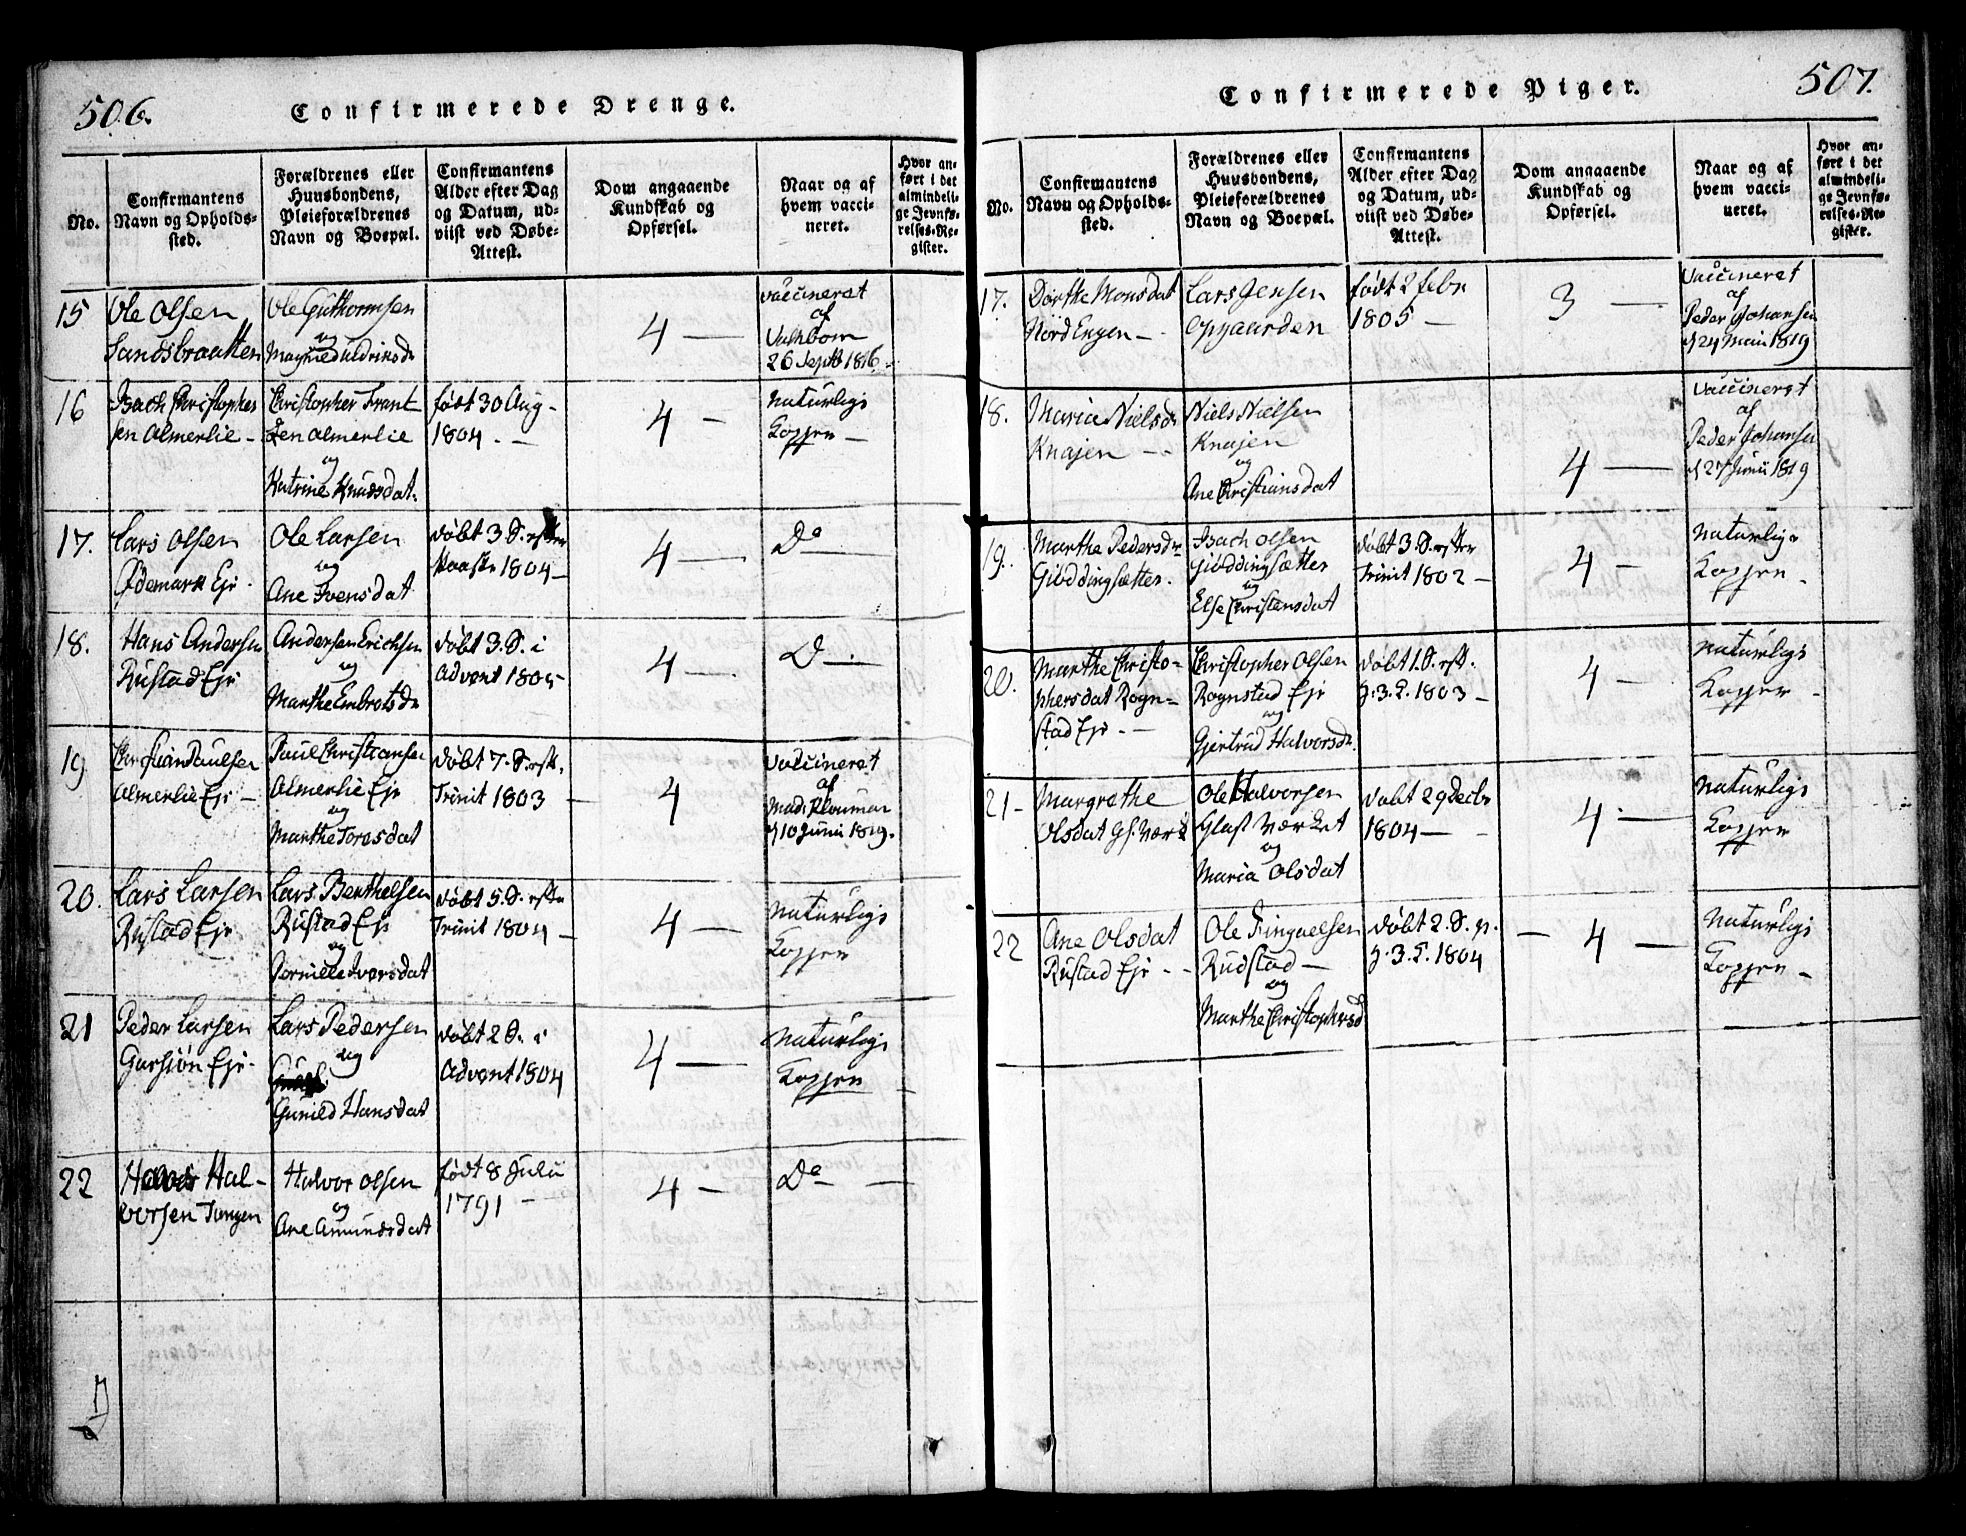 506.
Confirmerede Drenge.
No.
Confirmantens
Navn og Opholds-
sted.
Forældrenes eller
Huusbondens,
Pleieforældrenes
Navn og Boepæl.
Confirmantens
Alder efter Dag
og Datum, ud-
viist ved Døbe-
Attest.
Dom angaaende
Kundskab og
Opførsel.
Naar og af
hvem vacci-
neret.
Hvor an-
ført i det
almindeli-
ge Jevnfø-
relses-Re-
gister.
15
Ole Olsen
Sandsbraatten
Ole Guthormsen
og
4 —
Vaccineret
af
26 Sept 1816.
16
Isach Christopher
sen Almerlie -
Christopher Frant
zen Almerlie
og
Katrine Knudsdat.
født 30 Aug -
1804 - -
4 -
Naturlige
Kopper -
17.
Lars Olsen
Ødemark Eje -
Ole Larsen
og
Ane Ivensdat
døbt 3 S. efter
Paaske 1804 -
4 —
Do —
18.
Hans Andersen
Rustad Eje
Andersen Erichsen
og
Marthe Embretsdr
døbt 3 S. i
Advent 1805
4 —
D —
19
Christian Paulsen
Almerlie Eje -
Paul Christiansen
Almerlie Eje
og
Marthe Toresdat
døbt 7. S. eft.
Trinit 1803 -
4
Vaccineret
af
d 10 Juni 1819.
20.
Lars Larsen
Rustad Eje
Lars Berthelsen
Rustad Eje
og
Pernille Iversdat
døbt 5 S. efter
Trinit 1804 -
4 —
Naturlige
Kopper
21
Peder Larsen
Garsiøn Eje -
Lars Pedersen
og
Gunild Hansdat
døbt 2 S. i
Advent 1804
4 —
Naturlige
Kopper
22
Halvor Hal-
vorsen Tangen
Halvor Olsen
og
Ane Amundsdat
født 8 Julii
1791 -
4 —
Do —
507.
Confirmerede Piger.
No.
Confirmantens
Navn og Opholds-
sted.
Forældrenes eller
Huusbondens,
Pleieforældrenes
Navn og Boepæl.
Confirmantens
Alder efter Dag
og Datum, ud-
viist ved Døbe-
Attest.
Dom angaaende
Kundskab og
Opførsel.
Naar og af
hvem vacci-
neret.
Hvor an-
ført i det
almindeli-
ge Jevnfø-
relses-Re-
gister.
17.
Dorthe Monsdat
Nord Engen -
Lars Jensen
Opgaarden
født 2 febr
1805 -
3 —
Vaccineret
af
Peder Johansen
d 24 Mai 1819
18.
Maria Nielsdr
Knajen -
Niels Nielsen
Knajen
og
Ane Christiansdat
4 —
Vaccineret
af
Peder Johansen
d 27 Junii 1819
19.
Marthe Pedersdr
Giøddingsætter.
Isach Olsen
Giøddingsætter
og
Else Christensdat
døbt 3. S. efter
Trinit 1802 -
4 -
Naturlige
Kopper -
20.
Marthe Christo-
phersdat Rogn-
stad Eje. -
Christopher Olsen
Rognstad Eje
og
Giertrud Halvorsdr.
døbt 1. S. eft.
h. 3. K. 1803 -
4 -
Naturlige
Kopper -
21 -
Margrethe
Olsdat Gl. Værk
Ole Halvorsen
Glass Værket
og
Maria Olsdat
døbt 29 Decbr
1804 —
4 —
Naturlige
Kopper
22
Ane Olsdat
Rustad Eje - -
Ole Fingaelsen
Rudstad -
og
Marthe Christophersd
døbt 2. S. p.
h. 3. K. 1804
- 4 -
Naturlige
Kopper -